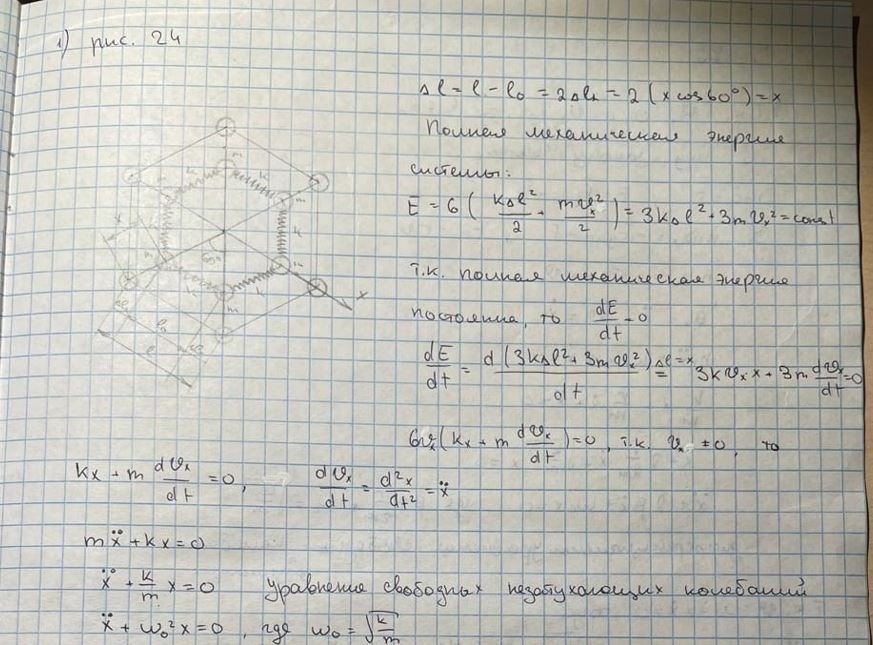 1) рис. 24
Δl = l - l₀ = 2Δl₁ = 2 (x cos60°) = x
Полная механическая энергия
системы:
E = 6 ( kΔl²/2 + mϑₓ²/2 ) = 3kΔl² + 3mϑₓ² = const
т.к. полная механическая энергия
постоянна, то dE/dt = 0
dE/dt = d (3kΔl² + 3mϑₓ²)/dt =(Δl = x) 3kϑₓx + 3m dϑₓ/dt = 0
6ϑₓ(kx + m dϑₓ/dt) = 0, т.к. ϑₓ ≠ 0, то
kx + m dϑₓ/dt = 0, dϑₓ/dt = d²x/dt² = ẍ
mẍ + kx = 0
ẍ + k/m x = 0 уравнение свободных незатухающих колебаний
ẍ + ω₀²x = 0, где ω₀ = √(k/m)
60°
x
k
m
l₀
l